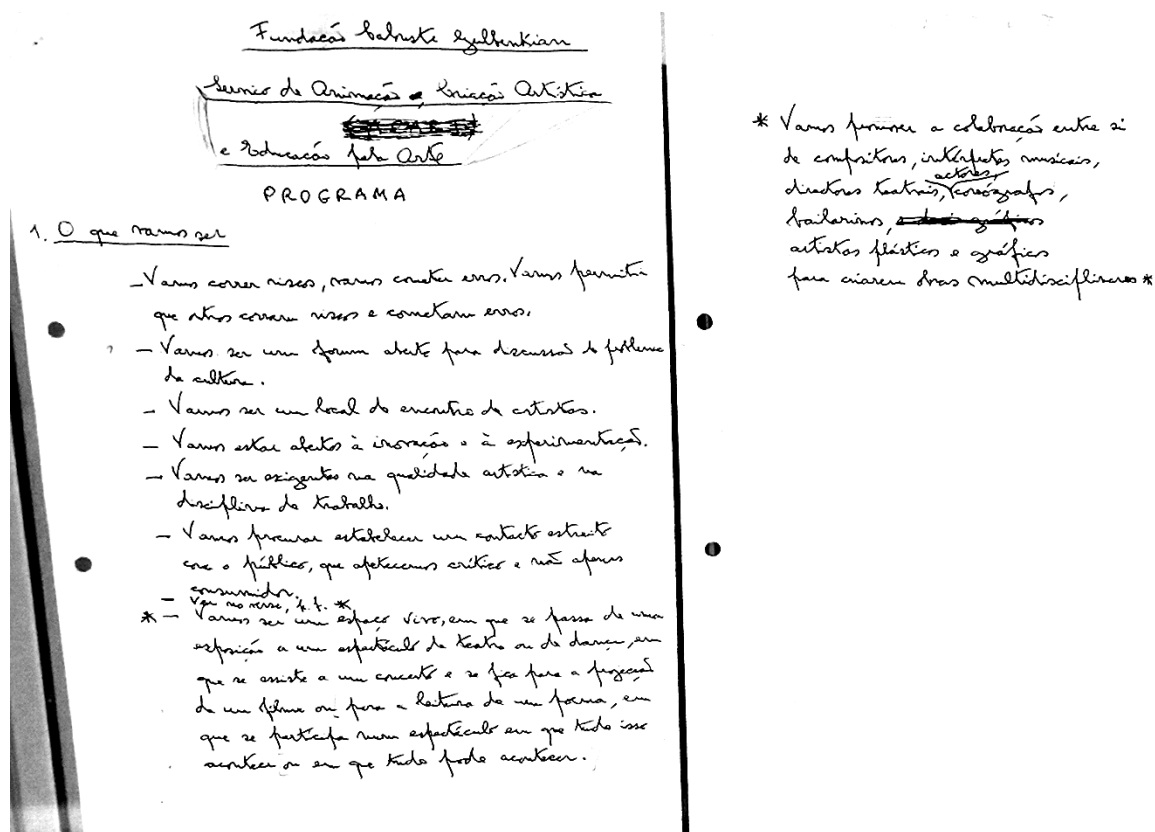 Fundação Calouste Gulbenkian
Serviço de Animação e Criação Artística
e Educação pela Arte
PROGRAMA
1. O que vamos ser
- Vamos correr riscos, vamos cometer erros. Vamos permitir
que outros corram riscos e cometam erros.
- Vamos ser um forum aberto para discussão do problema
da cultura.
- Vamos ser um local de encontro de artistas.
- Vamos estar abertos à inovação e à experimentação.
- Vamos ser exigentes na qualidade artística e na
disciplina de trabalho.
- Vamos procurar estabelecer um contacto estreito
com o público, que apetecemos crítico e não apenas
consumidor.
- Ver no verso, p.f. *
* - Vamos ser um espaço vivo, em que se passa de uma
exposição a um espectáculo de teatro ou de dança, em
que se assiste a um concerto e se fica para a projecção
de um filme ou para a leitura de um poema, em
que se participa num espectáculo em que tudo isso
acontece ou em que tudo pode acontecer.
* Vamos promover a colaboração entre si
de compositores, intérpretes musicais,
directores teatrais, actores, coreógrafos,
bailarinos,
artistas plásticos e gráficos
para criarem obras multidisciplinares *